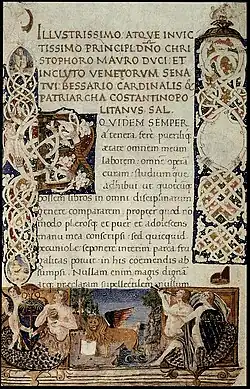 ILLVSTRISSIMO ATQVE INVIC
TISSIMO PRINCIPI DÑO CHRI
STOPHORO MAVRO DVCI ET
INCLYTO VENETORVM SENA
TVI BESSARIO CARDINALIS
PATRIARCHA COSTANTINOPO
LITANVS SAL.
QVIDEM SEMPER
a tenera fere pueriliq
ætate omnem meum
laborem, omne opera
curam studiumque
adhibui ut quotcuq
possem libros in omni disciplinarum
genere compararem, propter quod no
modo plerosq et puer et adolescens
manu mea conscripsi sed quicquid
pecuniolæ seponere interim parca fru
galitas potuit in his coemendis ab
sumpsi. Nullam enim magis dignã
præclaram supellectilem